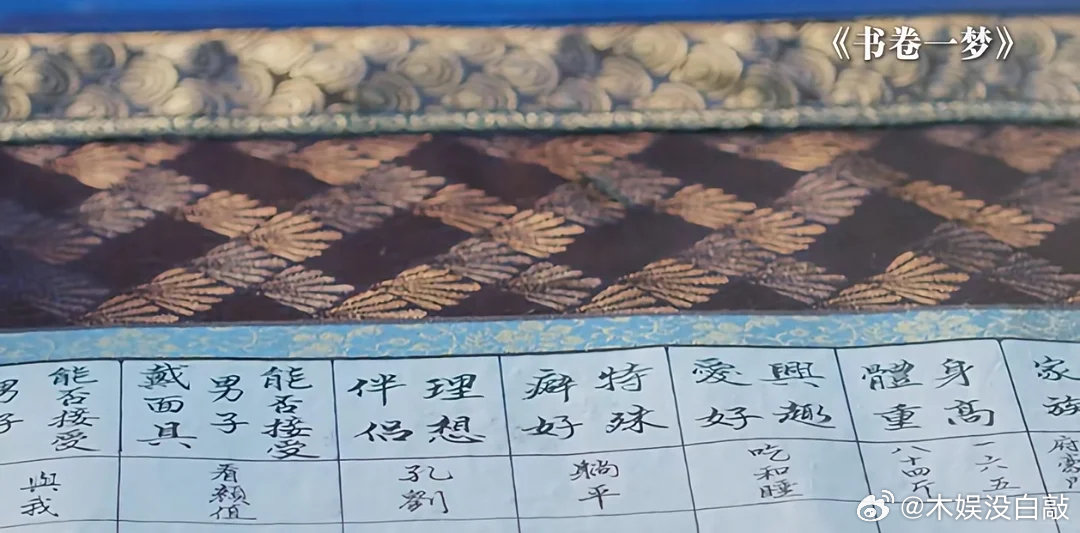 《书卷一梦》
家族
身高
體重
興趣
愛好
特殊
癖好
理想
伴侶
能否接受
男子
戴面具
能否接受
男子
一六五
八十四斤
吃和睡
躺平
孔劉
看顏值
與我
@木娱没白敲